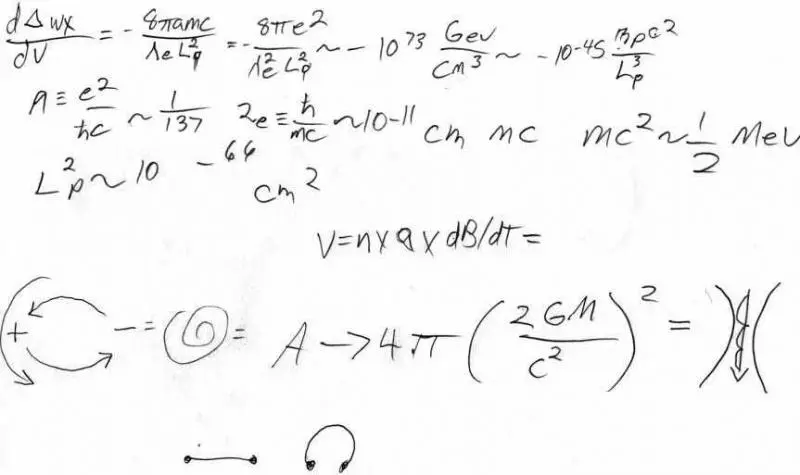 dΔwx/dV = - 8παmc/ΛeLp² = - 8πe²/Λe²Lp² ~ - 10⁷³ GeV/cm³ ~ -10-45 mpc²/Lp³
A ≡ e²/ħc ~ 1/137 2e ≡ ħ/mc ~ 10-11 cm mc mc² ~ 1/2 MeV
Lp² ~ 10 - 66 cm²
V=nxaxdB/dT=
+ - = = A → 4π (2GM/c²)² =